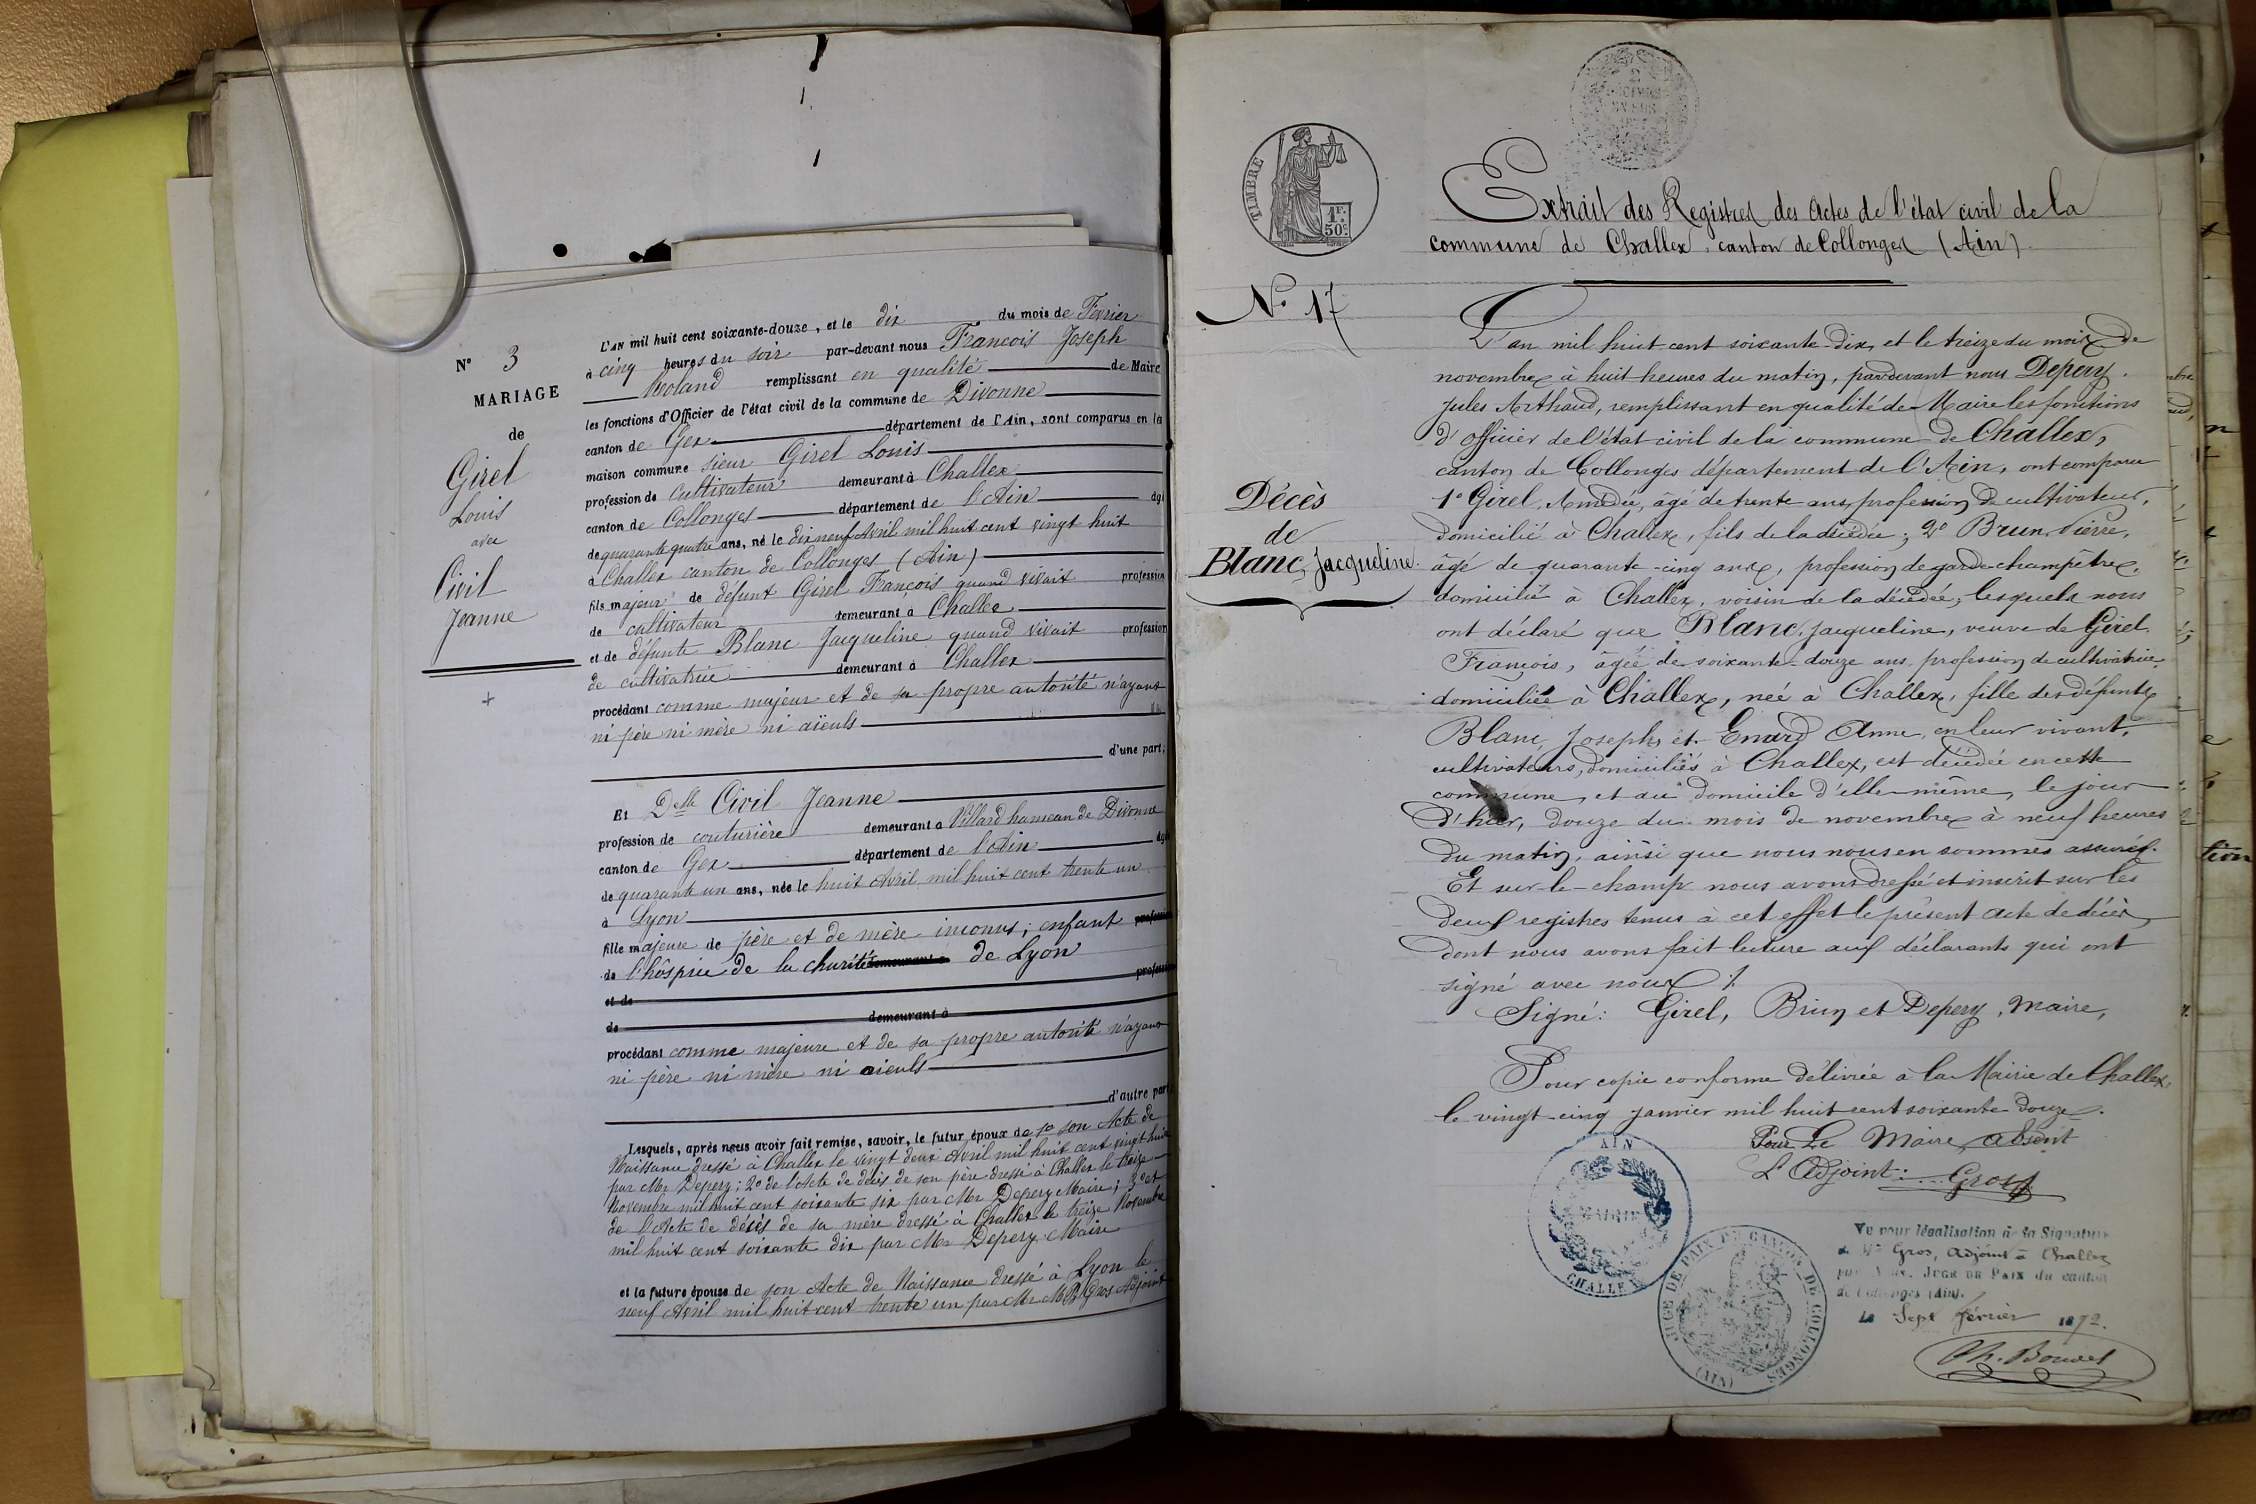 N° 3
MARIAGE
de
Girel
Louis
avec
Civil
Jeanne
L'AN mil huit cent soixante-douze, et le dix du mois de Février
à cinq heures du soir par-devant nous François Joseph
Roland remplissant en qualité de Maire
les fonctions d'Officier de l'état civil de la commune de Divonne
canton de Gex département de l'Ain, sont comparus en la
maison commune sieur Girel Louis
profession de cultivateur demeurant à Challex
canton de Collonges département de l'Ain âgé
de quarante quatre ans, né le dix neuf Avril mil huit cent vingt huit
à Challex canton de Collonges (Ain)
fils majeur de défunt Girel François quand vivait profession
de cultivateur demeurant à Challex
et de défunte Blanc Jacqueline quand vivait profession
de cultivatrice demeurant à Challex
procédant comme majeur et de sa propre autorité n'ayant
ni père ni mère ni aïeuls
d'une part;
Et Delle Civil Jeanne
profession de couturière demeurant à Villard hameau de Divonne
canton de Gex département de l'Ain âgée
de quarante un ans, née le huit Avril mil huit cent trente un
à Lyon
fille majeure de père et de mère inconnus; enfant profession
de l'hôspice de la charité demeurant à de Lyon
et de profession
de demeurant à
procédant comme majeure et de sa propre autorité n'ayant
ni père ni mère ni aieuls
d'autre part
Lesquels, après nous avoir fait remise, savoir, le futur époux de 1° son Acte de
Naissance dressé à Challex le vingt deux Avril mil huit cent vingt huit
par Mr Depery; 2° de l'Acte de décès de son père dressé à Challex le treize
Novembre mil huit cent soixante six par Mr Depery Maire; 3° et
de l'Acte de décès de sa mère dressé à Challex le treize Novembre
mil huit cent soixante dix par Mr Depery Maire
et la future épouse de son Acte de Naissance dressé à Lyon le
neuf Avril mil huit cent trente un par Mr Gros Adjoint
TIMBRE
1F.
50c.
Extrait des Registres des Actes de l'état civil de la
commune de Challex, canton de Collonges (Ain)
N° 17
Décès
de
Blanc, Jacqueline.
L'an mil huit-cent soixante-dix, et le treize du mois de
novembre à huit heures du matin, pardevant nous Depery
Jules Arthaud, remplissant en qualité de Maire les fonctions
d'officier de l'état civil de la commune de Challex,
canton de Collonges département de l'Ain, ont comparu
1° Girel, Amédée, âgé de trente ans, profession de cultivateur,
domicilié à Challex, fils de la décédée; 2° Brun, Pierre,
âgé de quarante-cinq ans, profession de garde-champêtre,
domicilié à Challex, voisin de la décédée; lesquels nous
ont déclaré que Blanc, Jacqueline, veuve de Girel
François, âgée de soixante-douze ans, profession de cultivatrice,
domiciliée à Challex, née à Challex, fille des défunts
Blanc, Joseph, et Emard Anne, en leur vivant,
cultivateurs, domiciliés à Challex, est décédée en cette
commune, et au domicile d'elle-même, le jour
d'hier, douze du mois de novembre à neuf heures
du matin, ainsi que nous nous en sommes assurés.
Et sur-le-champ nous avons dressé et inscrit sur les
deux registres tenus à cet effet le présent acte de décès,
dont nous avons fait lecture aux déclarants qui ont
signé avec nous.
Signé: Girel, Brun et Depery, Maire,
Pour copie conforme délivrée à la Mairie de Challex,
le vingt-cinq janvier mil huit cent soixante douze.
Pour Le Maire, absent
L'Adjoint: Gros
AIN
MAIRIE
CHALLEX
JUGE DE PAIX DU CANTON DE COLLONGES
(AIN)
Vu pour légalisation de la Signature
de Mr Gros, Adjoint à Challex
par Nous, JUGE DE PAIX du canton
de Collonges (Ain).
Le Sept février 1872.
Ch. Bouvet
tion